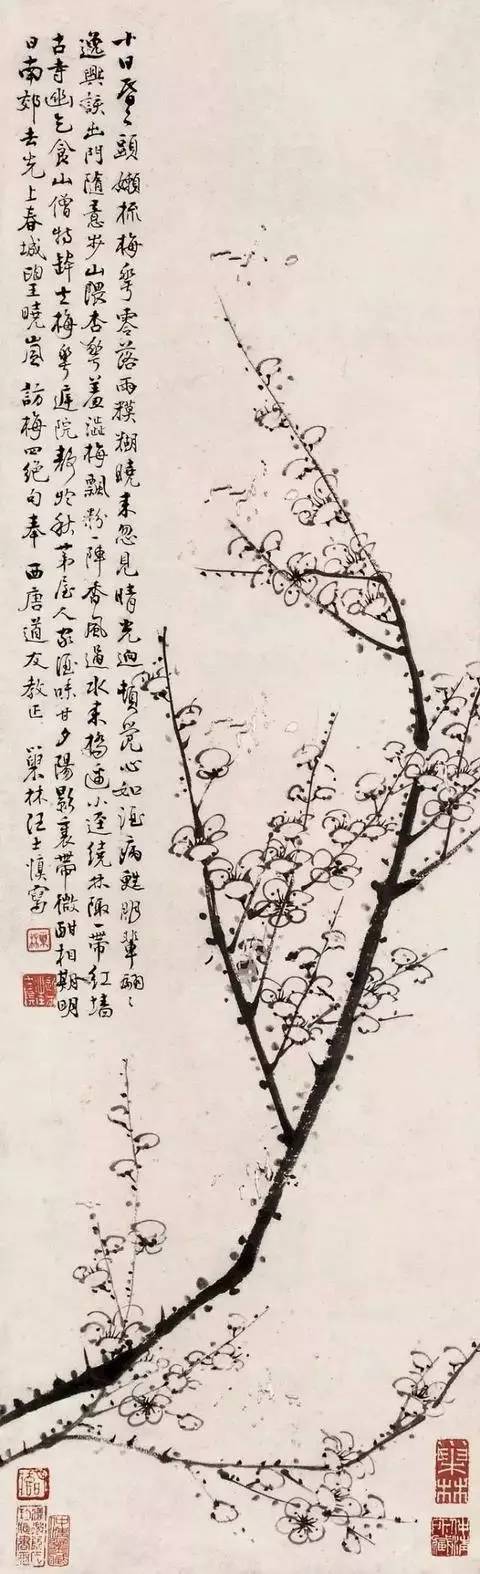 十日昏々頭嬾梳梅華零落雨糢糊曉来忽見晴光迥頓覺心如酒病甦朋輩翩々
逸興該出門隨意步山隈杏華羞澁梅飄粉一陣香風過水来橋邊小逕繞林陬一帶紅墻
古寺幽乞食山僧持鉢去梅華庭院靜於秋茅屋人家酒味甘夕陽影裏帶微酣相期明
日南郊去先上春城望曉嵐 訪梅四絕句奉 西唐道友教正 巢林汪士慎寫
巢林